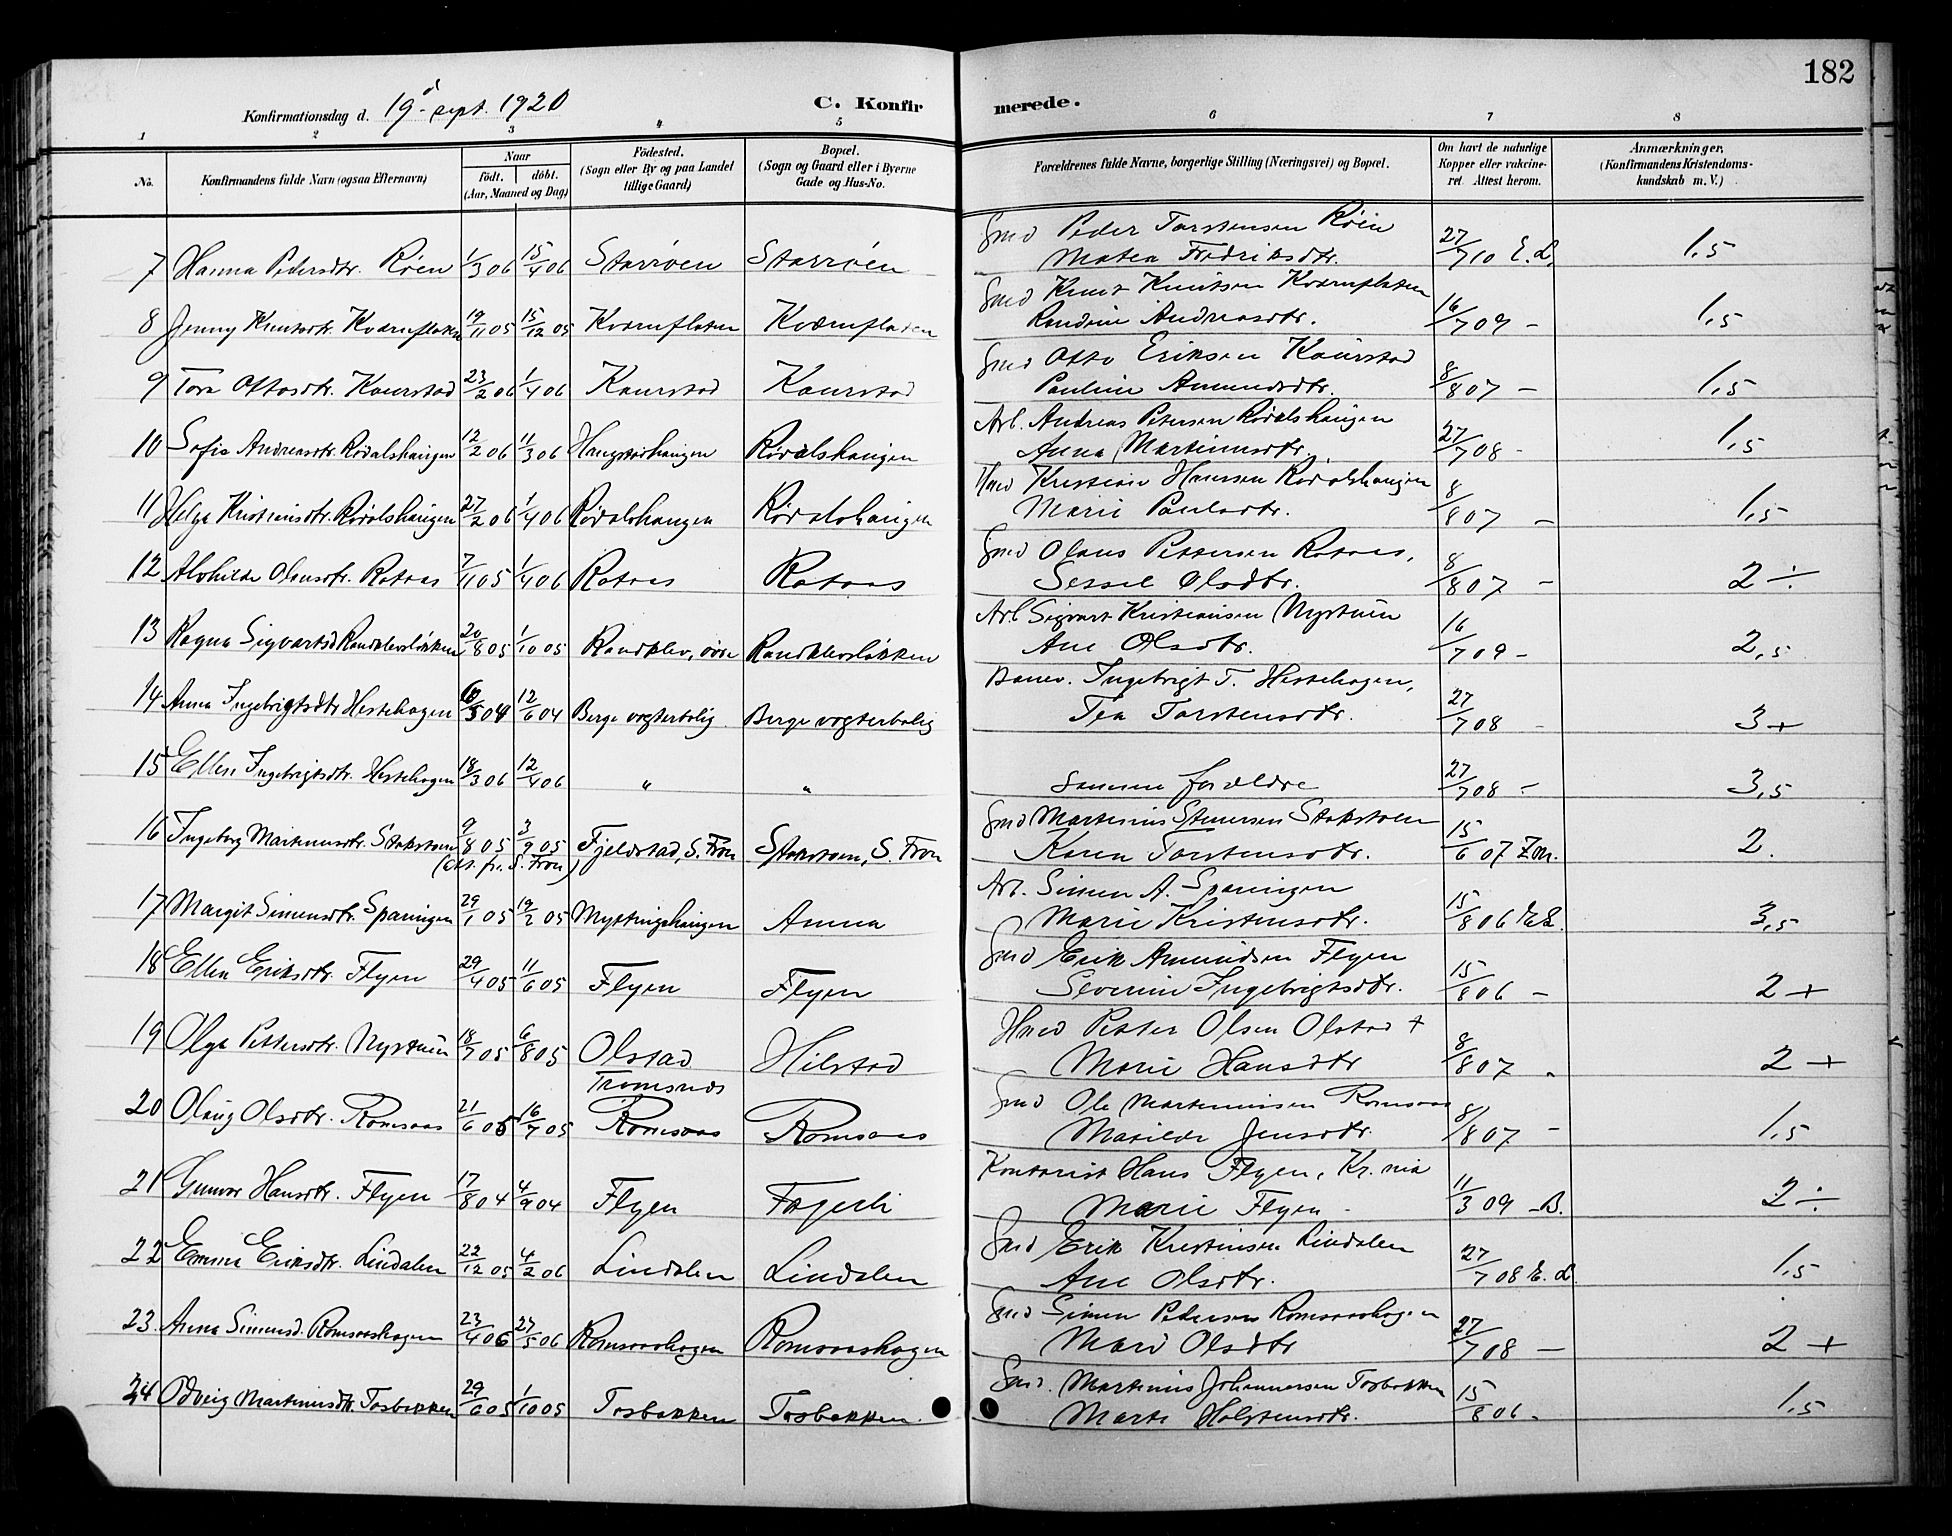 182
Konfirmationsdag d. 19de sept. 1920 C. Konfirmerede.
1 2 3 4 5 6 7 8
No. Konfirmandens fulde Navn (ogsaa Efternavn) Naar Födt. döbt. (Aar, Maaned og Dag) Födested. (Sogn eller By og paa Landet tillige Gaard) Bopæl. (Sogn og Gaard eller i Byerne Gade og Hus-No. Forældrenes fulde Navne, borgerlige Stilling (Næringsvei) og Bopæl. Om havt de naturlige Kopper eller vakcineret. Attest herom. Anmærkninger, (Konfirmandens Kristendomskundskab m. V.)
Gmd Peder Torstensen Röen
7 Hanna Pedersdtr. Röen 1/3 06 15/4 06 Starröen Starröen Matea Fredriksdtr. 27/7 10 E. L. 1,5
Gmd Knut Knutsen Kværnflaten
8 Jenny Knutsdtr. Kværnflaten 19/11 05 15/12 05 Kværnflaten Kværnflaten Randine Andreasdtr. 16/7 09 - 1,5
Gmd Otto Eriksen Kaurstad
9 Tora Ottosdtr. Kaurstad 23/2 06 1/4 06 Kaurstad Kaurstad Pauline Amundsdtr. 8/8 07 - 1,5
Arb. Andreas Petersen Rödalshaugen
10 Sofie Andreasdtr. Rödalshaugen 12/2 06 11/3 06 Haugstadhaugen Rödalshaugen Anna Martinusdtr. 27/7 08 - 1,5
Hmd Kristian Hansen Rödalshaugen
11 Helga Kristiansdtr. Rödalshaugen 27/2 06 1/4 06 Rödalshaugen Rödalshaugen Marie Paulsdtr. 8/8 07 - 1,5
Gmd Olaus Pettersen Rotaas,
12 Alvhilde Olausdtr. Rotaas 7/11 05 1/4 06 Rotaas Rotaas Sessel Olsdtr. 8/8 07 - 2 ÷
Arb. Sigvart Kristiansen Nystuen
13 Ragna Sigvartsd Randklevslökken 20/8 05 1/10 05 Randklev, övre Randklevslökken Ane Olsdtr. 16/7 09 - 2,5
Banev. Ingebrigt T. Hestehagen,
14 Anna Ingebrigtsdtr Hestehagen 6/5 04 12/6 04 Berge vogterbolig Berge vogterbolig Tea Torstensdtr. 27/7 08 - 3+
15 Ellen Ingebrigtsdtr. Hestehagen 18/3 06 12/4 06 " " Samme forældre 27/7 08 - 3,5
Gmd Martinius Stenersen Stokstoen
16 Ingeborg Martinusdtr. Stokstoen 9/8 05 3/9 05 Fjeldstad, S. Fron Stokstoen, S. Fron Karen Torstensdtr. 15/6 07 Zm. 2.
(Att. fr. S. Fron)
Arb. Simen A. Sparingen
17 Margit Simensdtr. Sparingen 29/1 05 19/2 05 Nystuhaugen Amma Marie Kristensdtr. 15/8 06 E.L. 3,5
Gmd Erik Amundsen Flyen
18 Ellen Eriksdtr. Flyen 29/4 05 11/6 05 Flyen Flyen Severine Ingebrigtsdtr. 15/8 06 - 2 +
Hmd Petter Olsen Olstad +
19 Olga Pettersdtr. Nystuen 18/7 05 6/8 05 Olstad Hilstad Marie Hansdtr 8/8 07 - 2 +
Tromsnes
Gmd Ole Martinusen Romsaas
20 Olaug Olsdtr. Romsaas 21/6 05 16/7 05 Romsaas Romsaas Matilde Jensdtr. 8/8 07 - 1,5
Kontorist Hans Flyen, Kr. nia
21 Gunvor Hansdtr. Flyen 17/8 04 4/9 04 Flyen Fagerli Marie Flyen - 11/3 09 -B. 2 ÷
Gmd Erik Kristiansen Lindalen
22 Emma Eriksdtr. Lindalen 22/12 05 4/2 06 Lindalen Lindalen Ane Olsdtr. 27/7 08 E. L. 1,5
Gmd Simen Pedersen Romsaashagen
23. Anna Simensd. Romsaashagen 23/4 06 27/5 06 Romsaashagen Romsaashagen Mari Olsdtr 27/7 08 - 2 +
Gmd. Martinus Johannessen Tosbakken
24 Odveig Martinusdtr. Tosbakken 29/6 05 1/10 05 Tosbakken Tosbakken. Marte Halstensdtr. 15/8 06 - 1,5